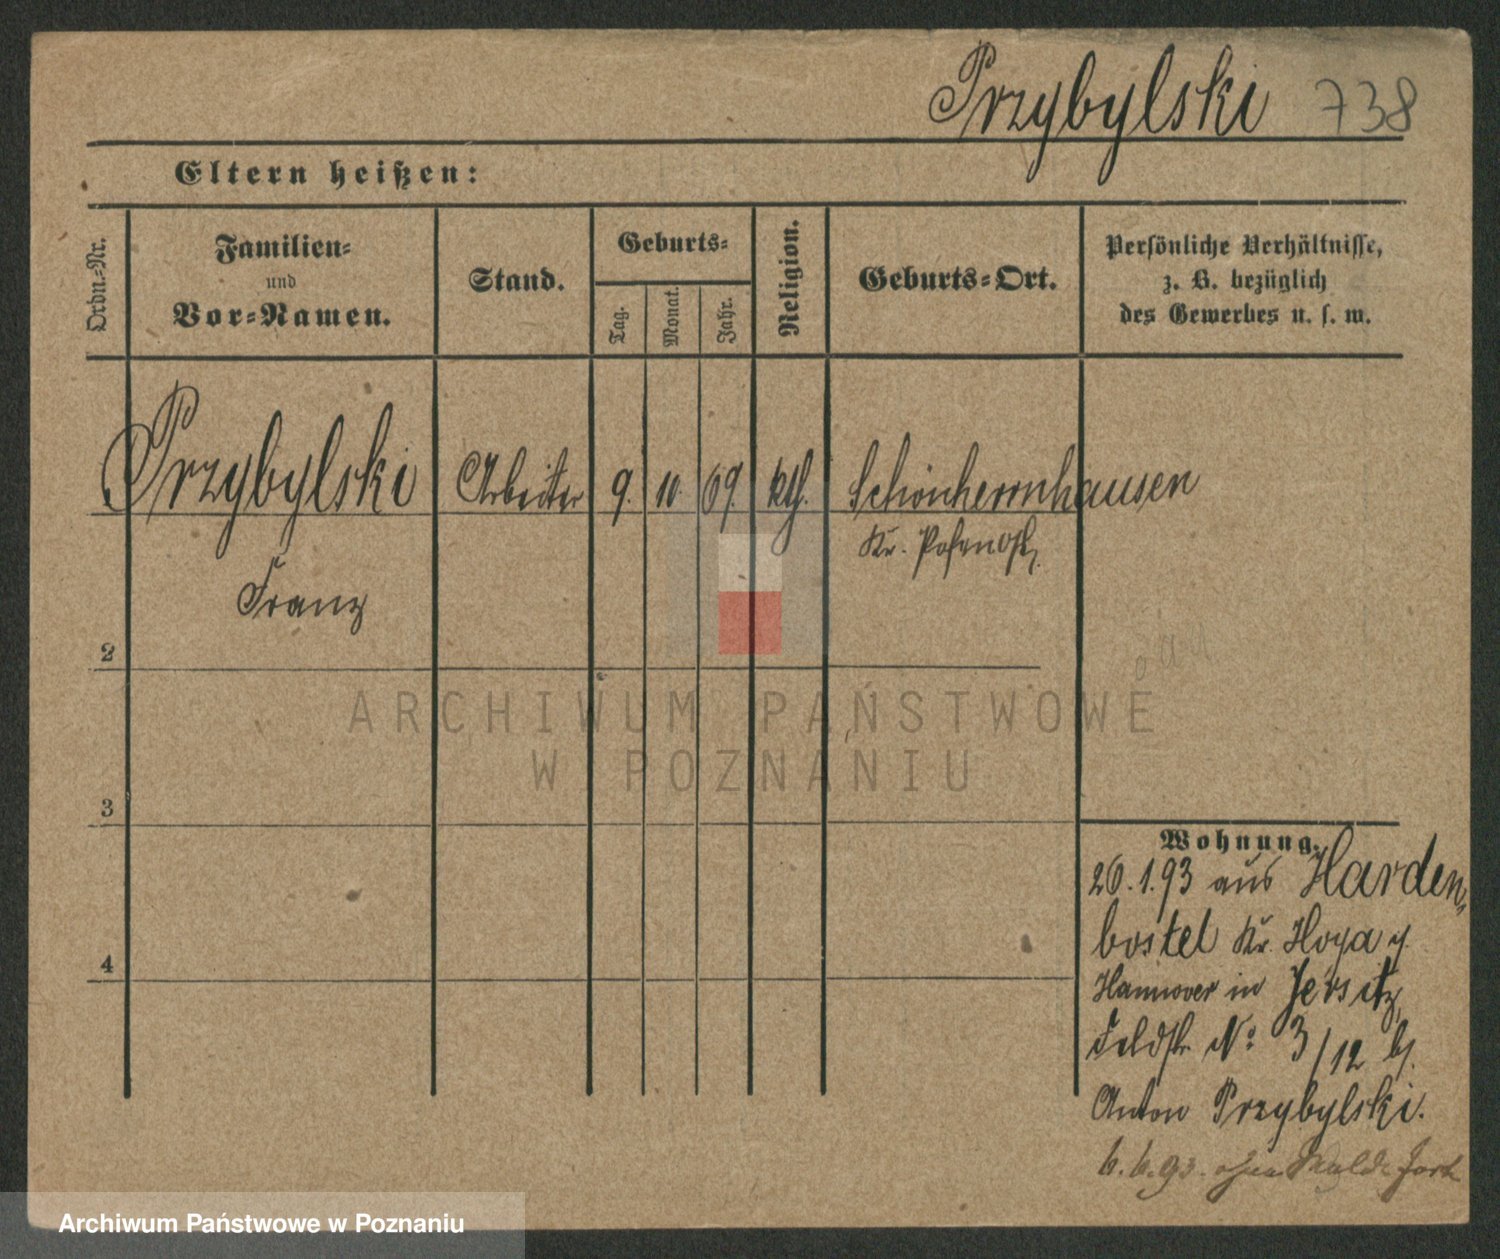 Przybylski 738
Eltern heißen:
Ordn.-Nr.
Familien-
und
Vor-Namen.
Stand.
Geburts-
Tag.
Monat.
Jahr.
Religion.
Geburts-Ort.
Persönliche Verhältnisse,
z. B. bezüglich
des Gewerbes u. s. w.
Przybylski Arbeiter 9. 10. 69. kth. Schönherrnhausen
Kr. Posen Ost,
Franz
2
3
4
Wohnung.
26.1.93 aus Harden-
bostel Kr. Hoya
Hannover in Jersitz,
Feldstr No 3/12 bj.
Anton Przybylski.
6.6.93. ohne Melde fort
ARCHIWUM PAŃSTWOWE
W POZNANIU
Archiwum Państwowe w Poznaniu